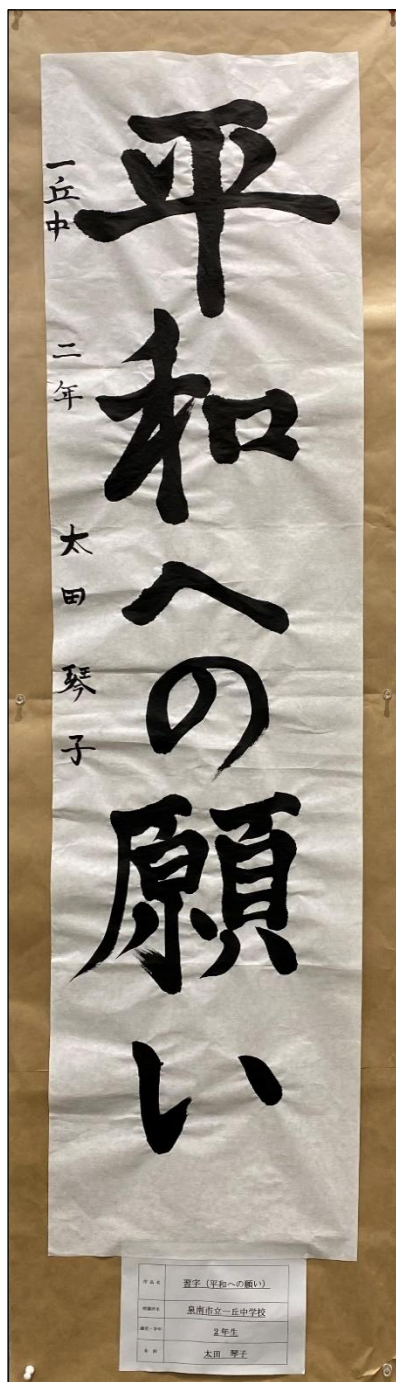 平和への願い
一丘中 二年 太田琴子
作品名 習字(平和への願い)
所属所名 泉南市立一丘中学校
職名・学年 2年生
名前 太田 琴子